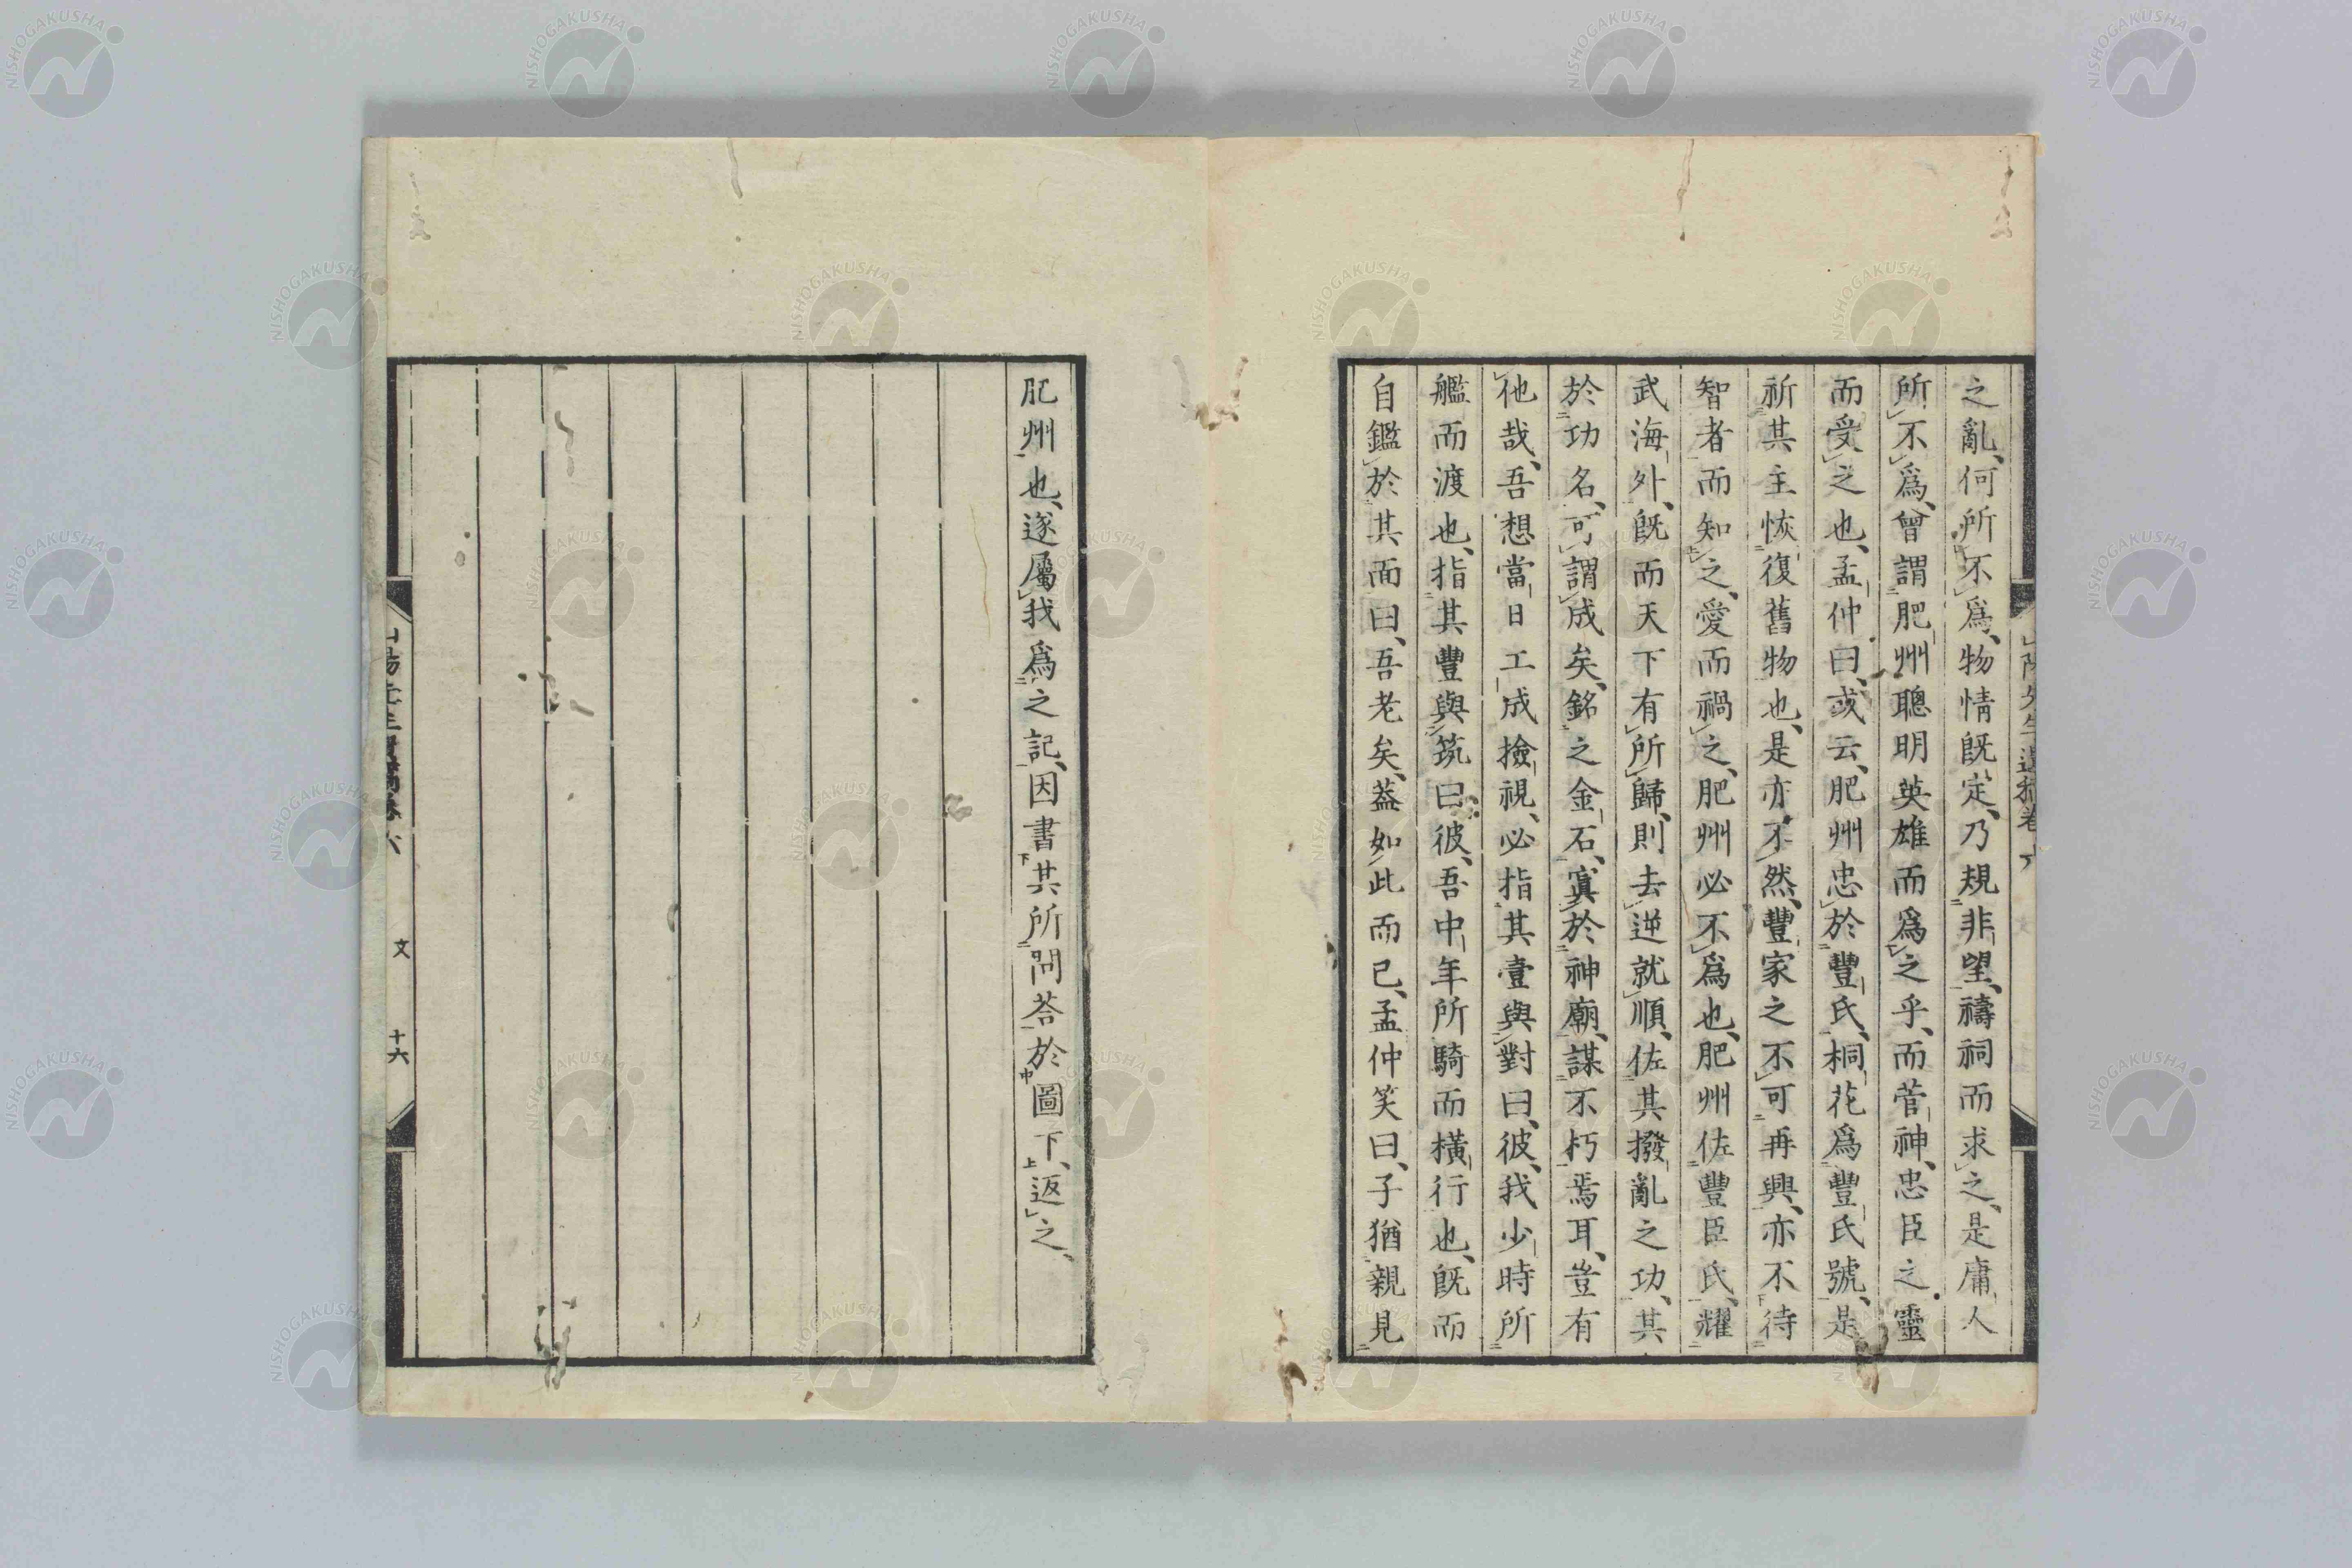 之亂、何所不爲、物情既定、乃規非望、禱祠而求之、是庸人
所不爲、曾謂肥州聰明英雄而爲之乎、而菅神、忠臣之靈
而受之也、孟仲曰、或云、肥州忠於豐氏、桐花爲豐氏號、是
祈其主恢復舊物也、是亦不然、豐家之不可再興、亦不待
智者而知之、愛而禍之、肥州必不爲也、肥州佐豐臣氏、耀
武海外、既而天下有所歸、則去逆就順、佐其撥亂之功、其
於功名、可謂成矣、銘之金石、寘於神廟、謀不朽焉耳、豈有
他哉、吾想當日工成撿視、必指其壹與對曰、彼、我少時所
艦而渡也、指其豐與筑曰、彼、吾中年所騎而橫行也、既而
自鑑於其面曰、吾老矣、蓋如此而已、孟仲笑曰、子猶親見
肥州也、遂屬我爲之記、因書其所問荅於圖下、返之、
文
十六
NISHOGAKUSHA